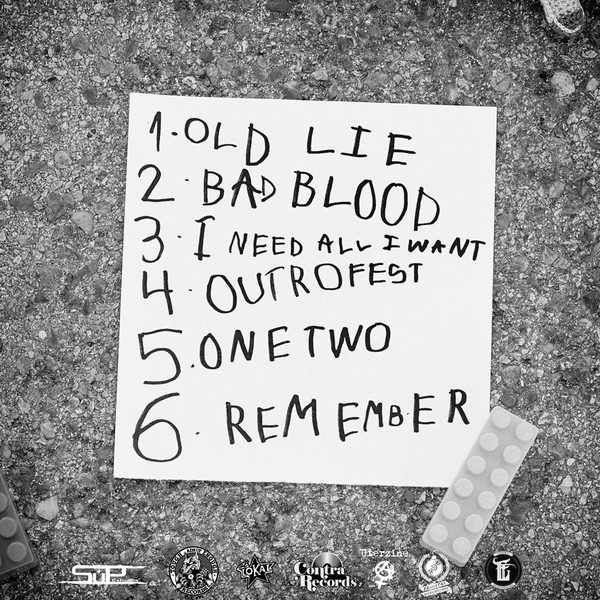 1. OLD LIE
2. BAD BLOOD
3. I NEED ALL I WANT
4. OUTROFEST
5. ONE TWO
6. REMEMBER
SUP
LOKAL
Contra
Records
Üierzine